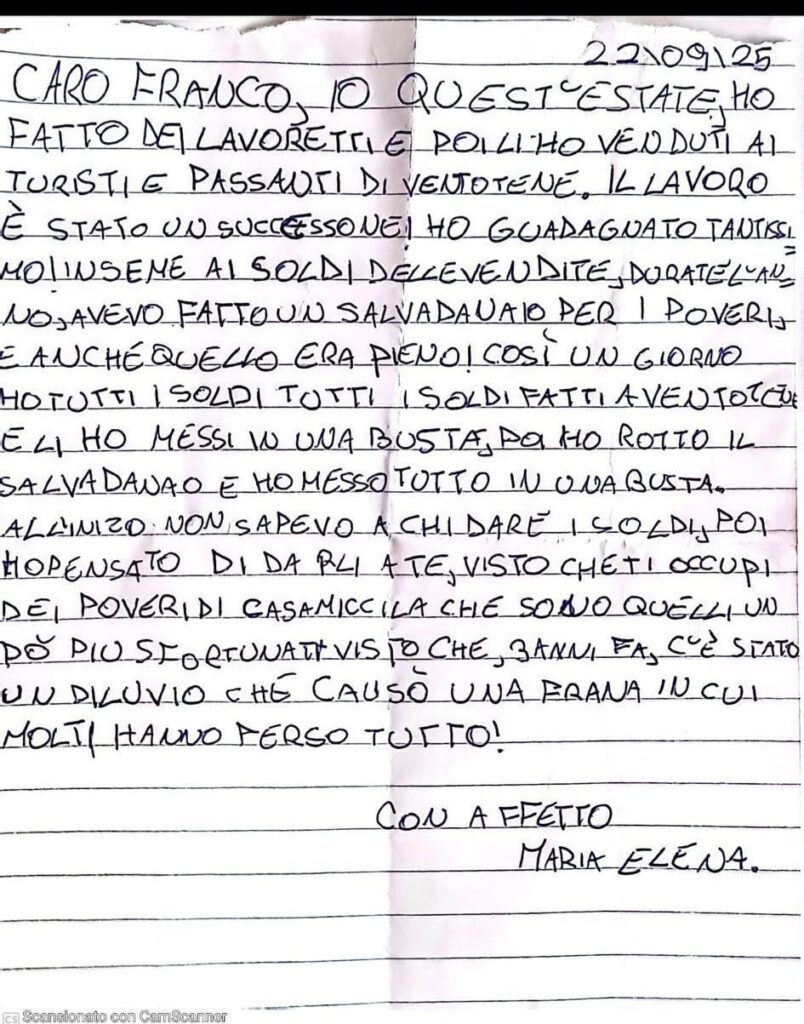 22\09\25
CARO FRANCO, IO QUEST'ESTATE, HO
FATTO DEI LAVORETTI E POI LI HO VENDUTI AI
TURISTI E PASSANTI DI VENTOTENE. IL LAVORO
È STATO UN SUCCESSONE! HO GUADAGNATO TANTISSI
MO! INSEME AI SOLDI DELLE VENDITE, DURATE L'AN
NO, AVEVO FATTO UN SALVADANAIO PER I POVERI,
E ANCHE QUELLO ERA PIENO! COSÌ UN GIORNO
HO TUTTI I SOLDI TUTTI I SOLDI FATTI A VENTOTENE
E LI HO MESSI IN UNA BUSTA, POI HO ROTTO IL
SALVADANAO E HO MESSO TUTTO IN UNA BUSTA.
ALL'INIZO NON SAPEVO A CHI DARE I SOLDI, POI
HO PENSATO DI DARLI A TE, VISTO CHE TI OCCUPI
DEI POVERI DI CASAMICCILA CHE SONO QUELLI UN
PÒ PIU SFORTUNATI VISTO CHE, 3 ANNI FA, C'È STATO
UN DILUVIO CHE CAUSÒ UNA FRANA IN CUI
MOLTI HANNO PERSO TUTTO!
CON AFFETTO
MARIA ELENA.
CS Scansionato con CamScanner